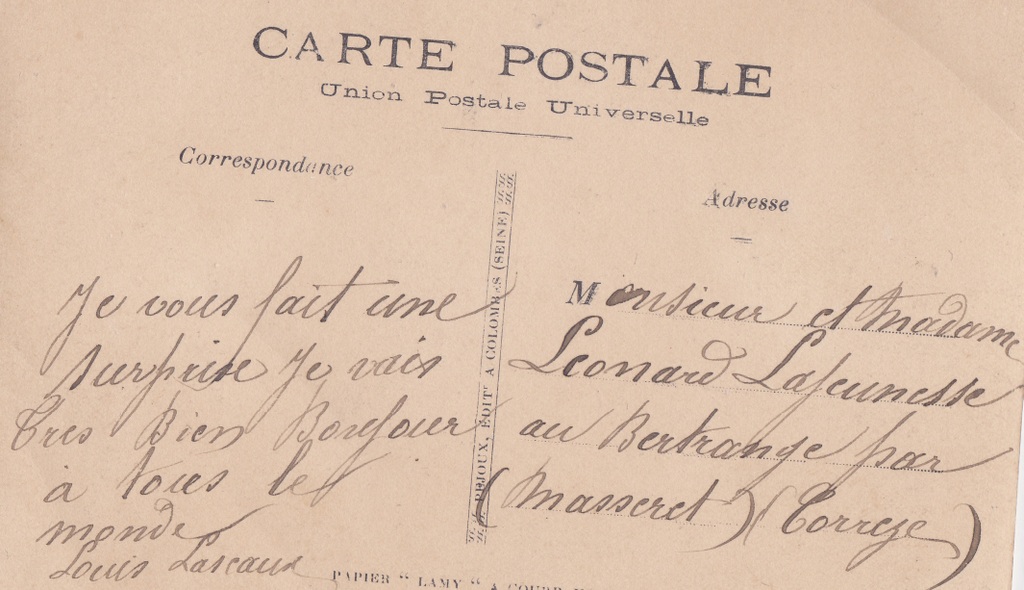 CARTE POSTALE
Union Postale Universelle
Correspondance
Je vous fait une
surprise Je vais
Tres Bien Bonjour
à tous le
monde
Louis Lascaux
PEJOUX, ÉDITr A COLOMBES (SEINE)
Adresse
Monsieur et Madame
Leonard Lajeunesse
au Bertrange par
(Masseret) (Correze)
PAPIER "LAMY" A COURB